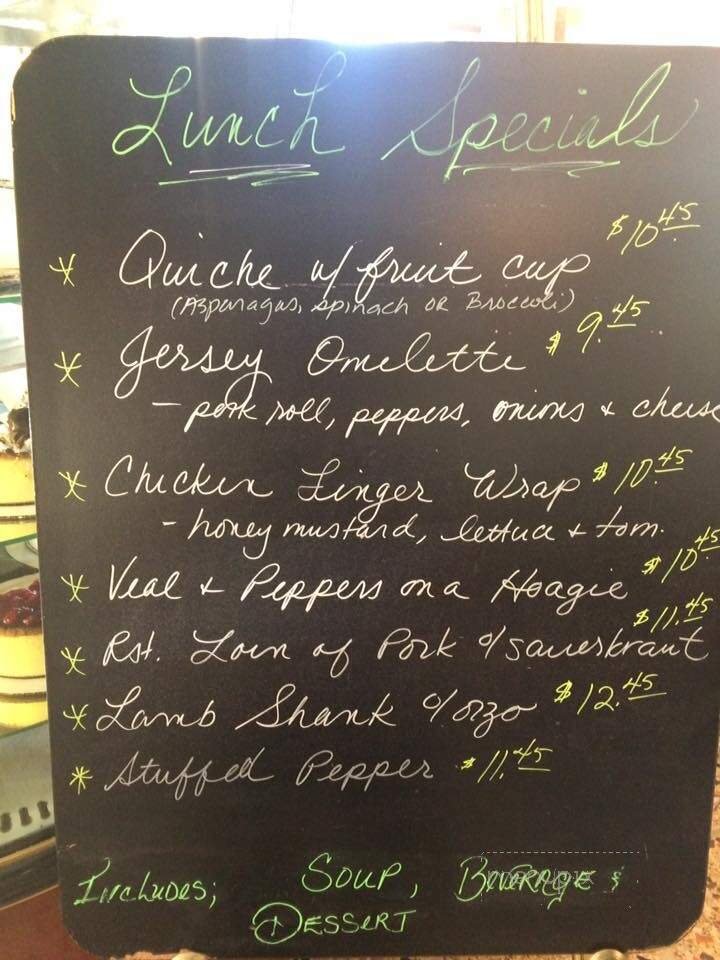 Lunch Specials
* Quiche w/ fruit cup $10.45
(Asparagus, spinach OR Broccoli)
* Jersey Omelette $9.45
- pork roll, peppers, onions + cheese
* Chicken Finger Wrap $10.45
- honey mustard, lettuce + tom.
* Veal + Peppers on a Hoagie $10.45
* Rst. Loin of Pork o/ sauerkraut $11.45
* Lamb Shank o/ orzo $12.45
* Stuffed Pepper $11.45
Includes; Soup, Beverage &
Dessert